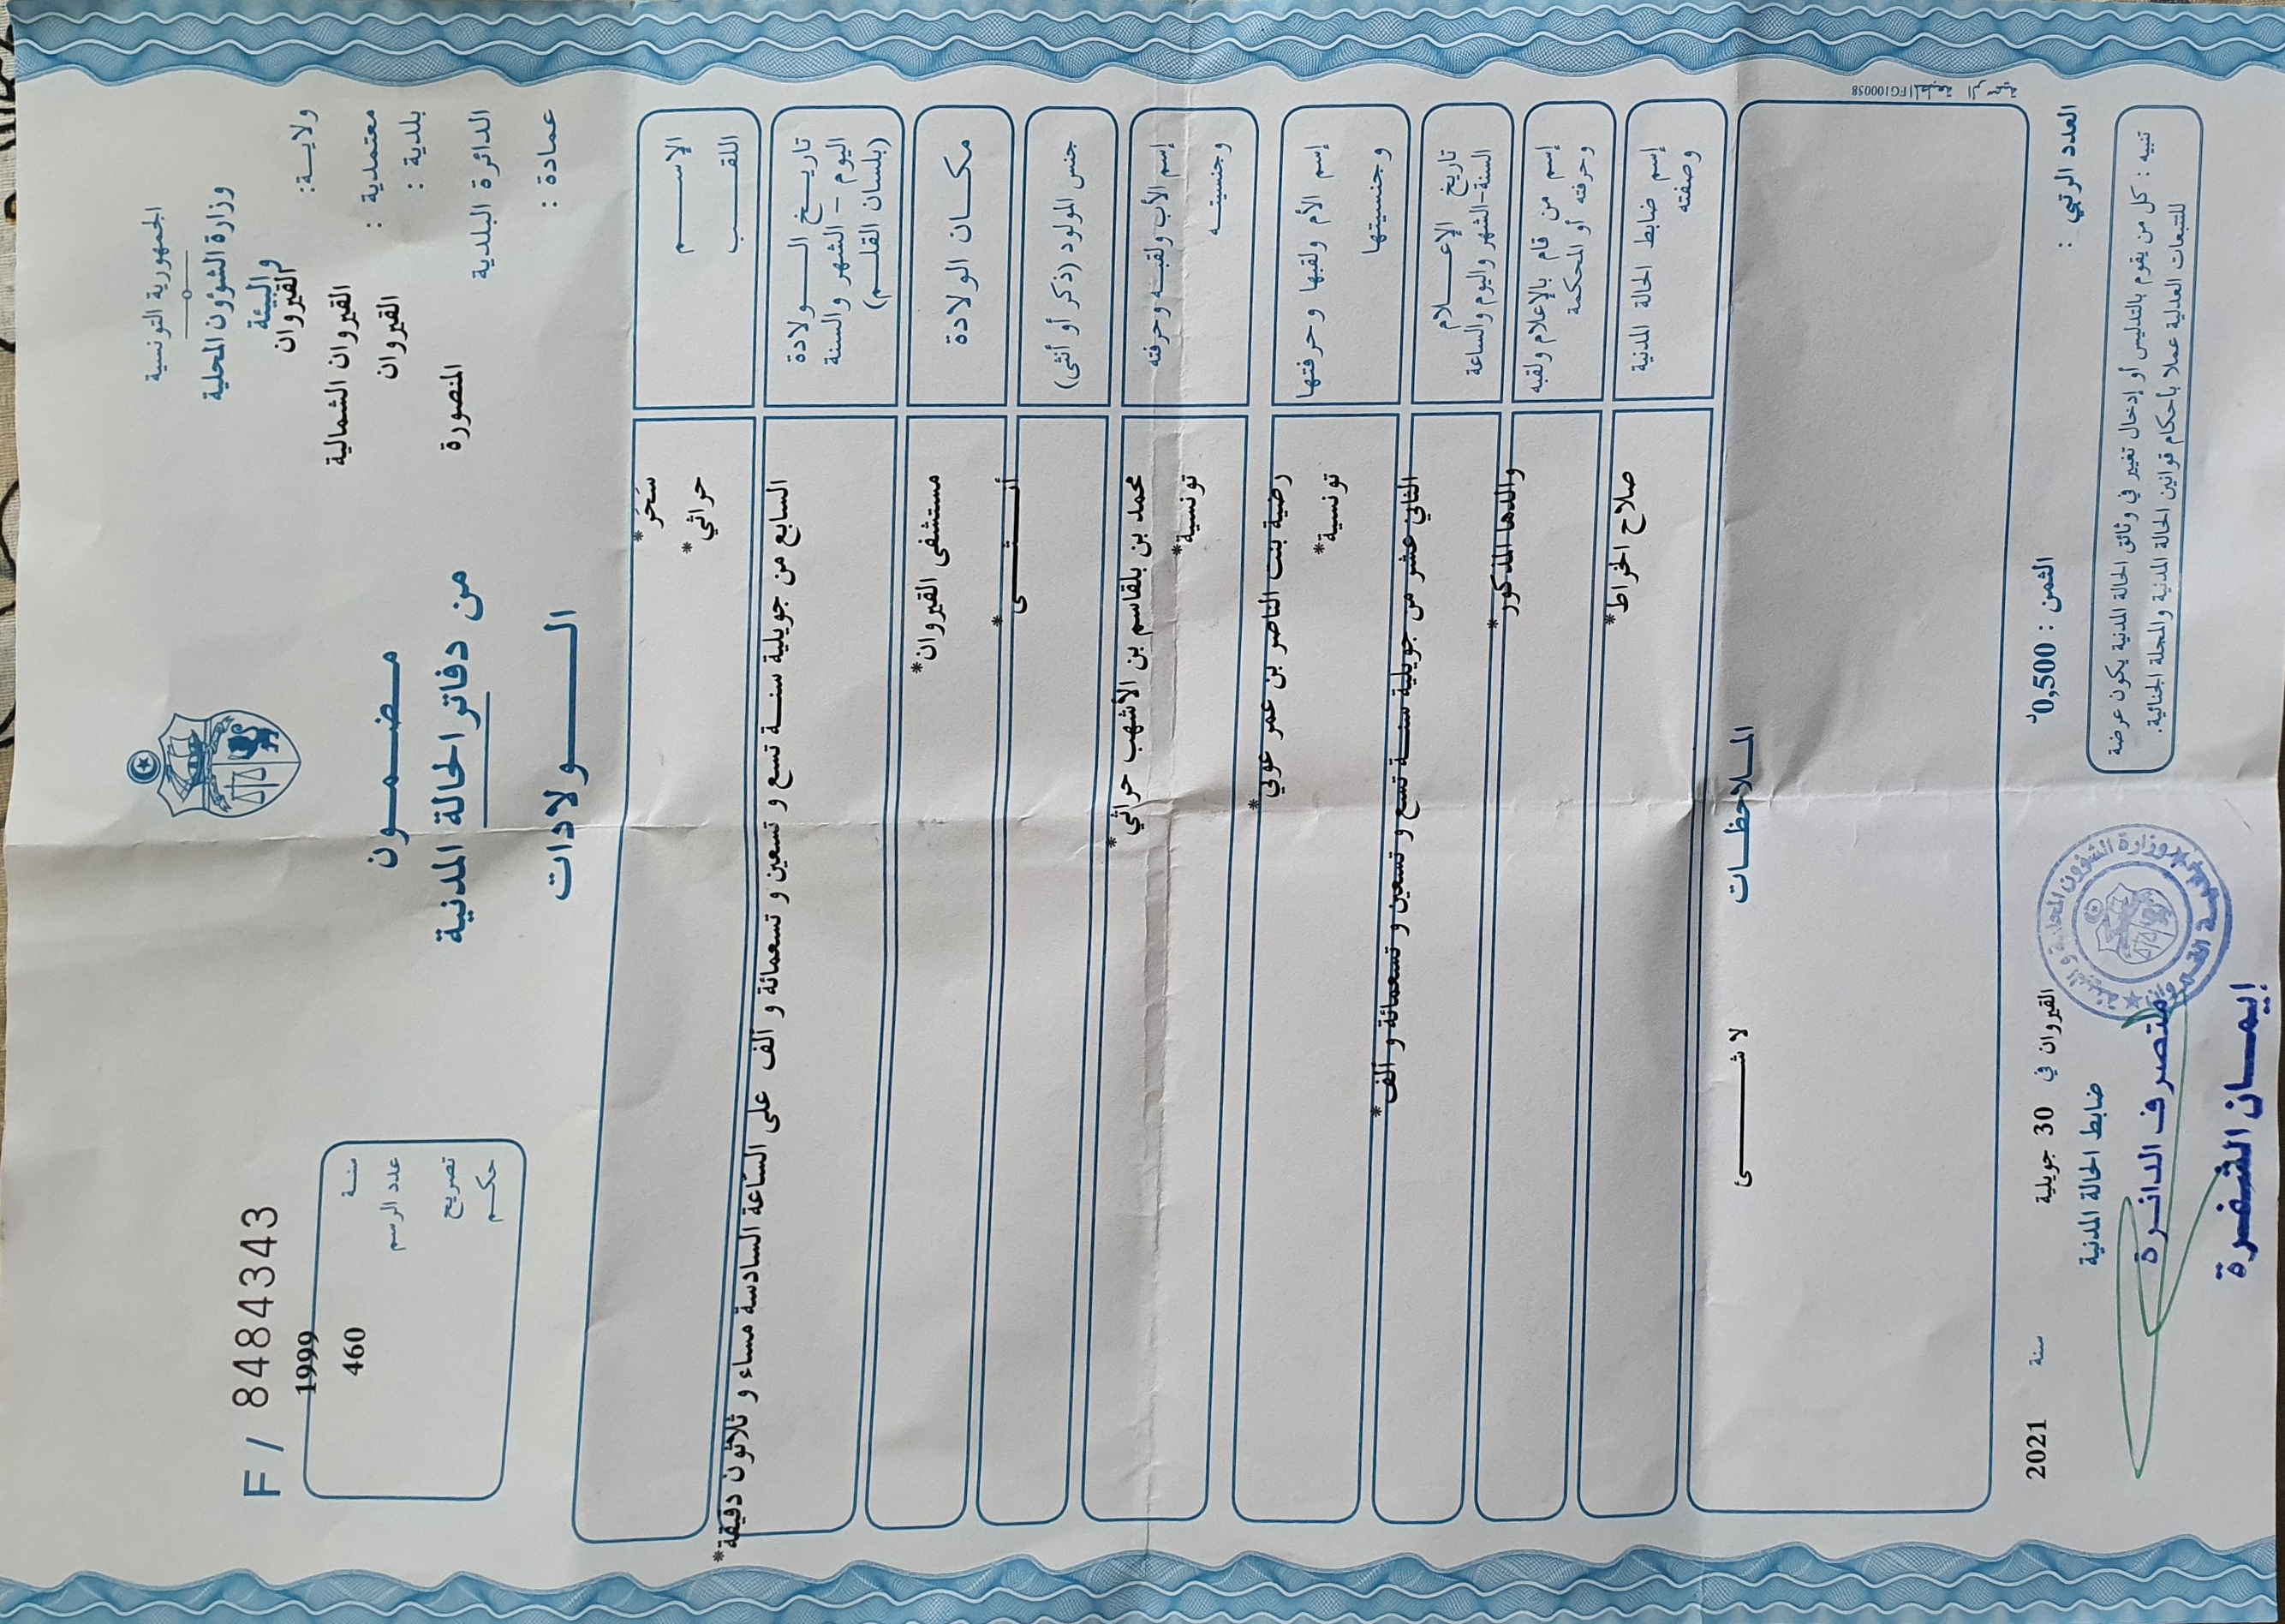 الجمهورية التونسية
وزارة الشؤون المحلية
والبيئة
ولايـــة: القيروان
معتمدية : القيروان الشمالية
بلدية : القيروان
الدائرة البلدية المنصورة
عمادة :
مـضـمــون
من دفاتر الحالة المدنية
الــــولادات
F / 8484343
سنـــة 1999
عدد الرسم 460
تصريح
حكـــم
الإســــــم سَحَر*
اللقـــــب حراثي*
تاريــخ الــــولادة
اليوم - الشهر والسنة
(بلسان القلـــم)
السابع من جويلية سنـــة تسع و تسعين و تسعمائة و ألف على الساعة السادسة مساء و ثلاثون دقيقة*
مكـــان الولادة مستشفى القيروان*
جنس المولود (ذكر أو أنثى) أنـــثـــى*
إسم الأب ولقبـــه وحرفته محمد بن بلقاسم بن الأشهب حراثي*
وجنسيتـــه تونسية*
إسم الأم ولقبها وحرفتها رضية بنت الناصر بن عمر عوني*
وجنسيتها تونسية*
تاريخ الإعـــــلام
السنة-الشهر واليوم والساعة
الثاني عشر من جويلية سنـــة تسع و تسعين و تسعمائة و ألف*
إسم من قام بالإعلام ولقبه
وحرفته أو المحكمة
والدها المذكور*
إسم ضابط الحالة المدنية صلاح الخراط*
وصفته
المــلاحظــات
لا شـــــئ
المطبعة الرسمية FG100058
العدد الرتبي :
الثمن : 0,500د
القيروان في 30 جويلية سنة 2021
ضابط الحالة المدنية
تنبيه : كل من يقوم بالتدليس أو إدخال تغيير في وثائق الحالة المدنية يكون عرضة
للتتبعات العدلية عملا بأحكام قوانين الحالة المدنية والمجلة الجنائية.
وزارة الشؤون المحلية و البيئة
بلدية القيروان
متصرف الدائرة
إيمــان الشفرة